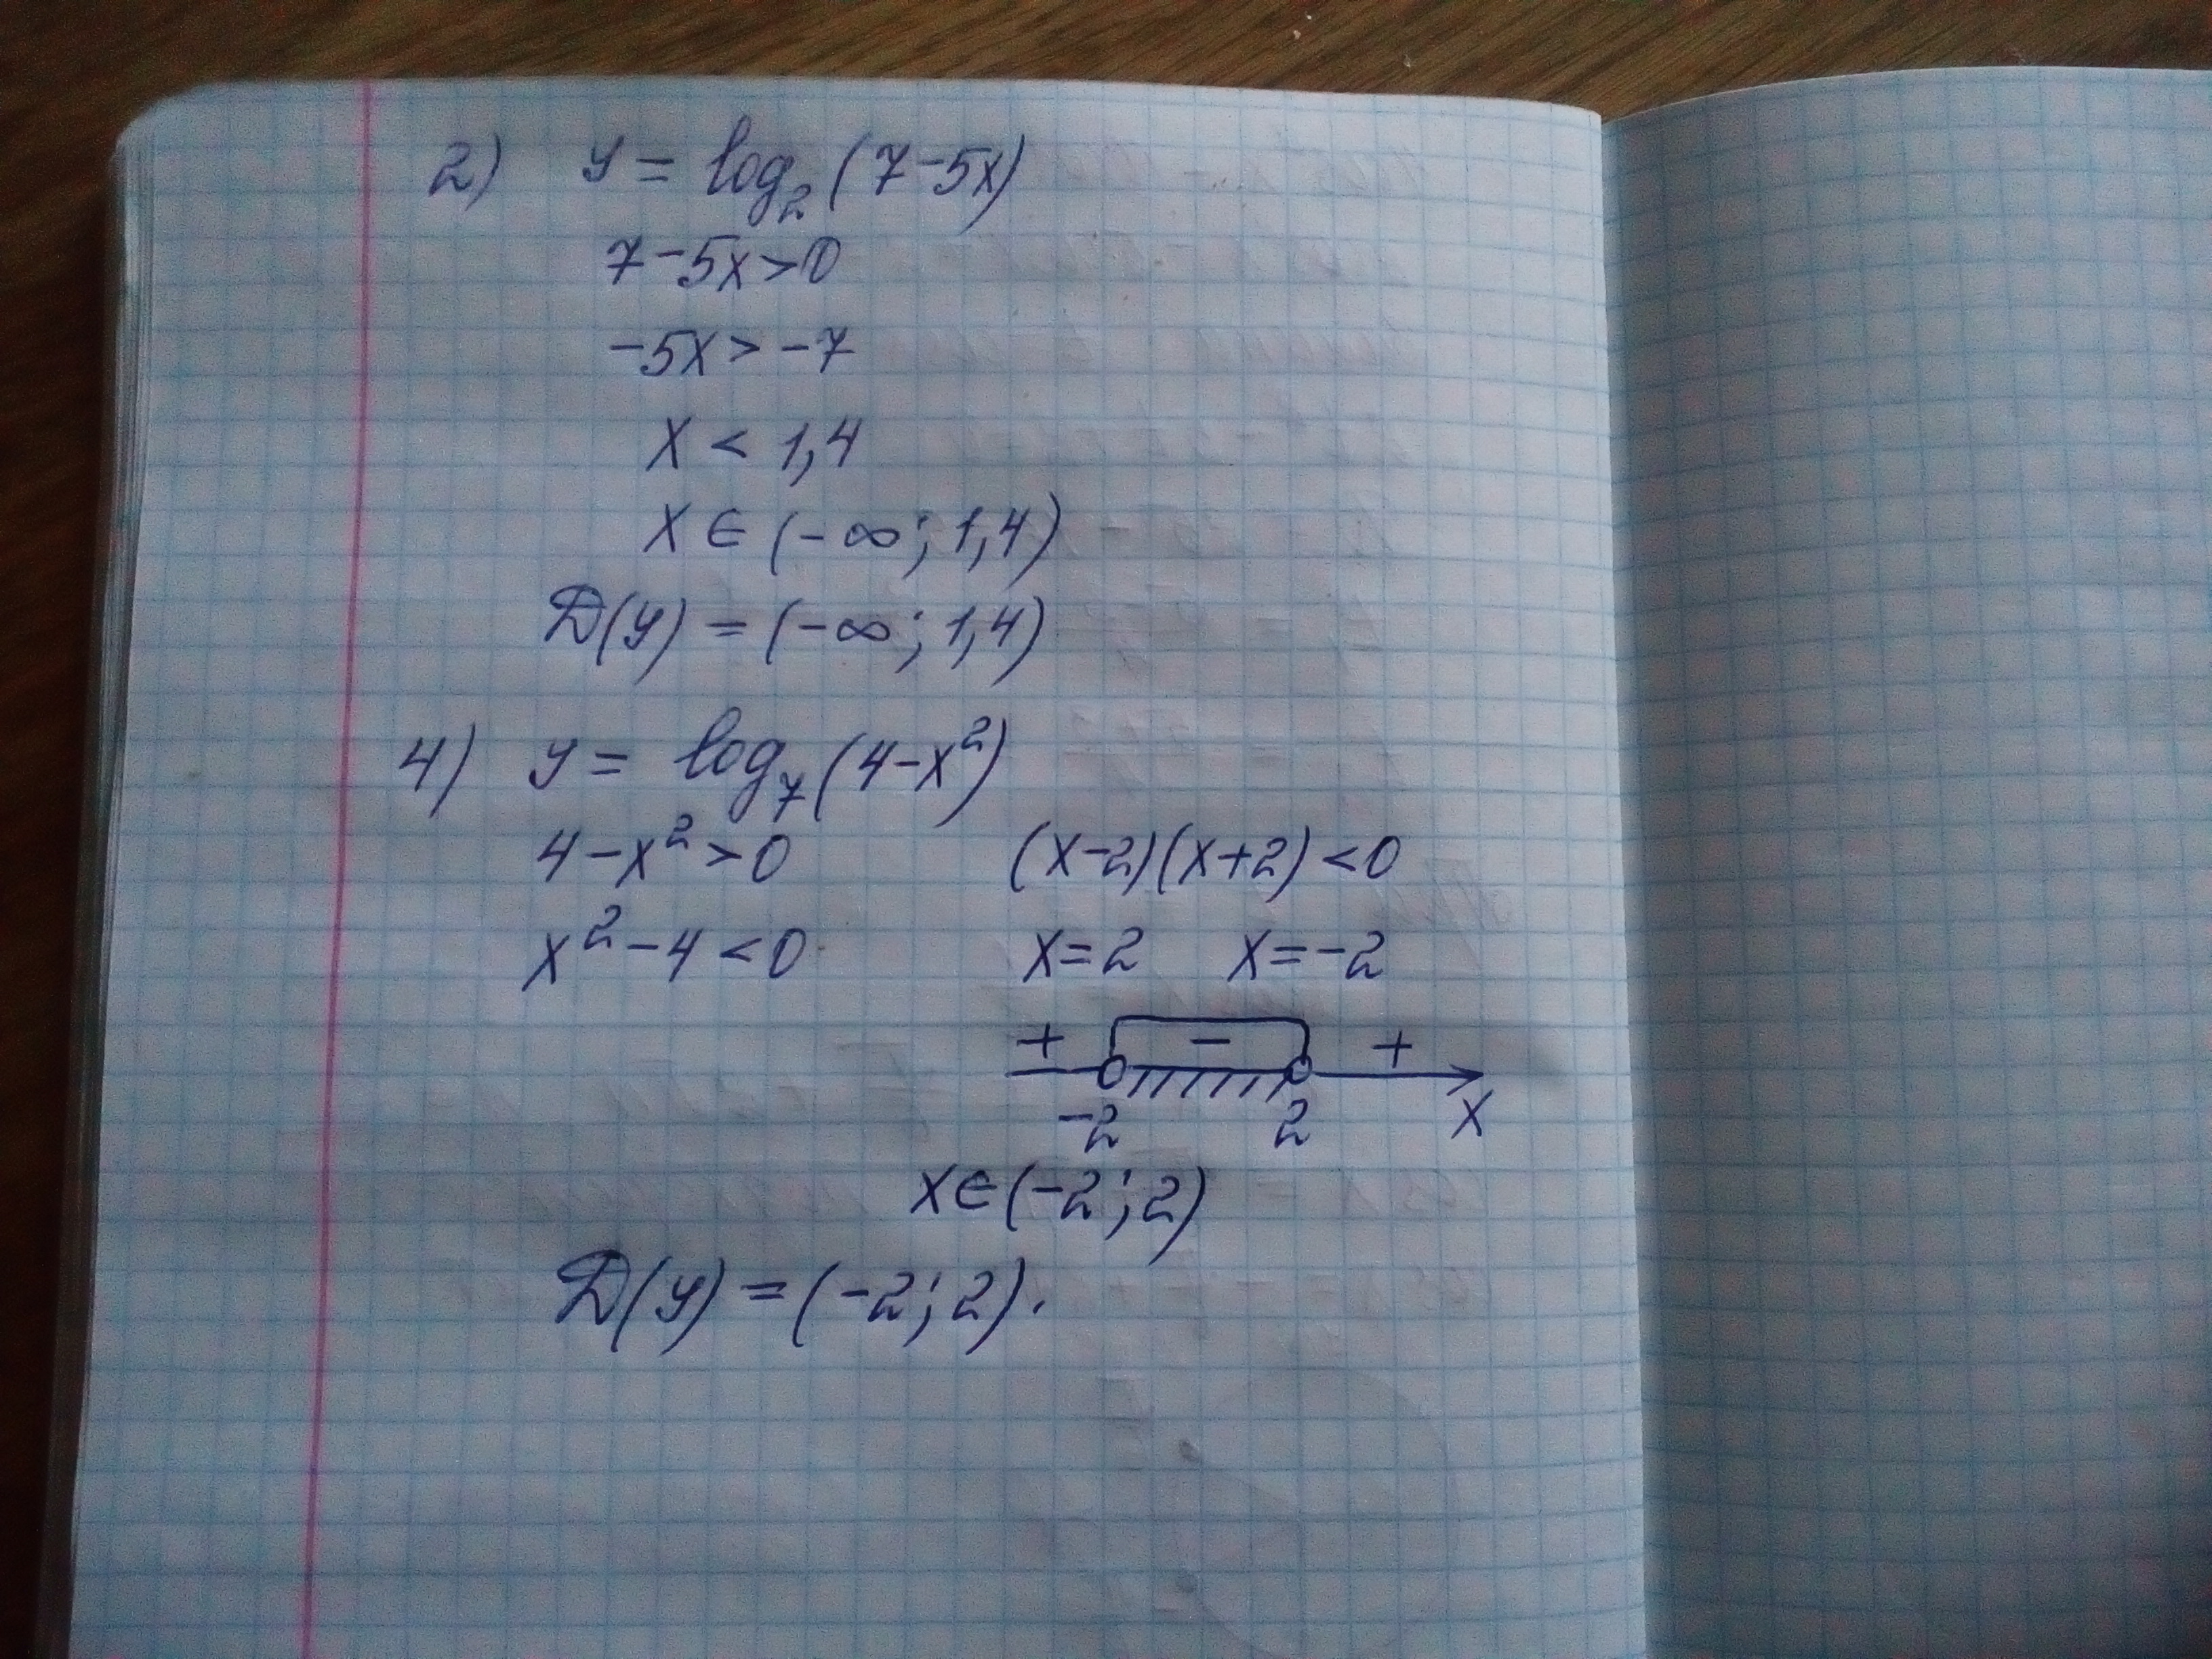 2) y = log₂(7-5x)
7-5x>0
-5x>-7
x < 1,4
x ∈ (-∞; 1,4)
D(y) = (-∞; 1,4)
4) y = log₇(4-x²)
4-x²>0
x²-4<0
(x-2)(x+2)<0
x=2 x=-2
+ - +
-2 2 x
x∈(-2; 2)
D(y) = (-2; 2).